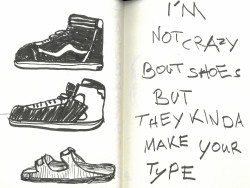 I'M
NOT CRAZY
BOUT SHOES
BUT
THEY KINDA
MAKE YOUR
TYPE